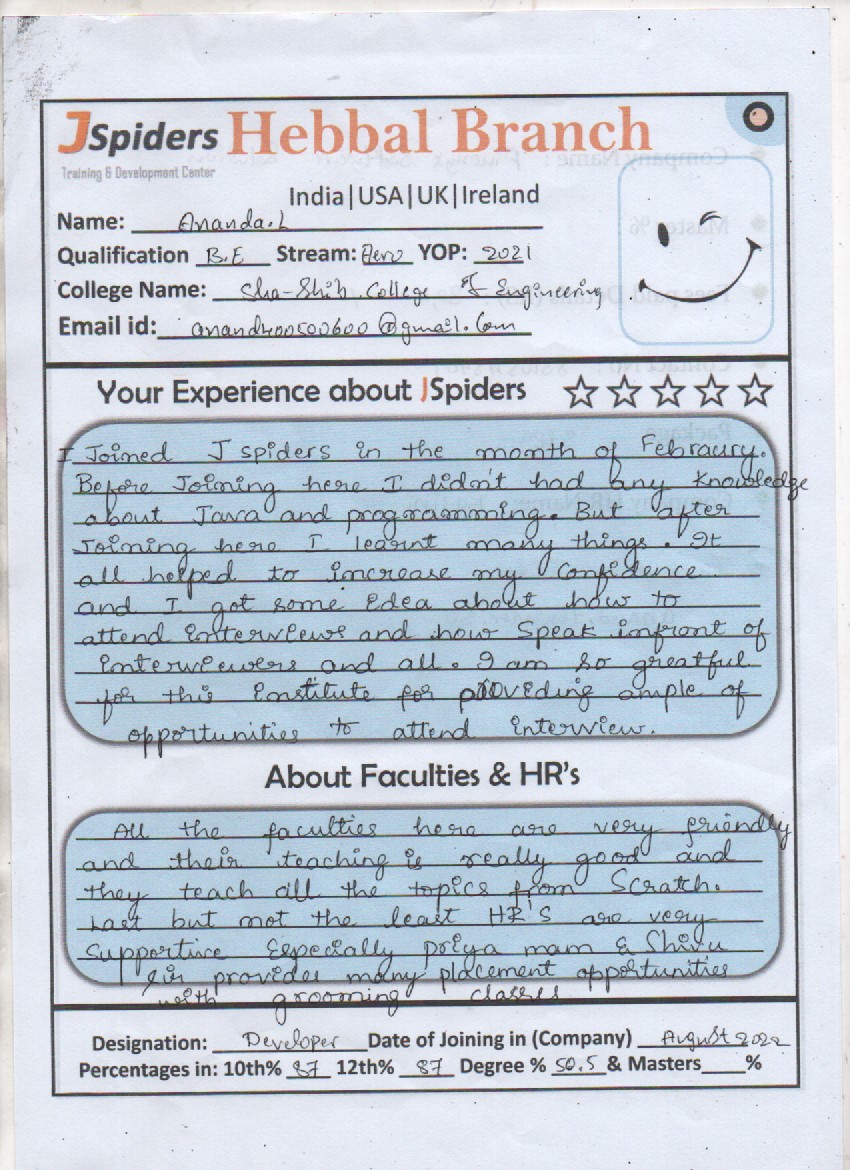 JSpiders Hebbal Branch
Training & Development Center
India|USA|UK|Ireland
Name: Ananda.L
Qualification B.E Stream: Aero YOP: 2021
College Name: Sha-Shib College of Engineering
Email id: anand400500600@gmail.com
Your Experience about JSpiders
I Joined J spiders in the month of Febraury.
Before Joining here I didn't had any Knowledge
about Java and programming. But after
Joining here I learnt many things. It
all helped to increase my confidence
and I got some idea about how to
attend interviews and how speak infront of
interviewers and all. I am so greatful
for this institute for providing ample of
opportunities to attend interview.
About Faculties & HR's
All the faculties here are very friendly
and their teaching is really good and
they teach all the topics from Scratch.
Last but not the least HR'S are very
supportive Especially priya mam & Shivu
sir provides many placement opportunities
with grooming classes
Designation: Developer Date of Joining in (Company) August 2022
Percentages in: 10th% 87 12th% 87 Degree % 50.5 & Masters____%